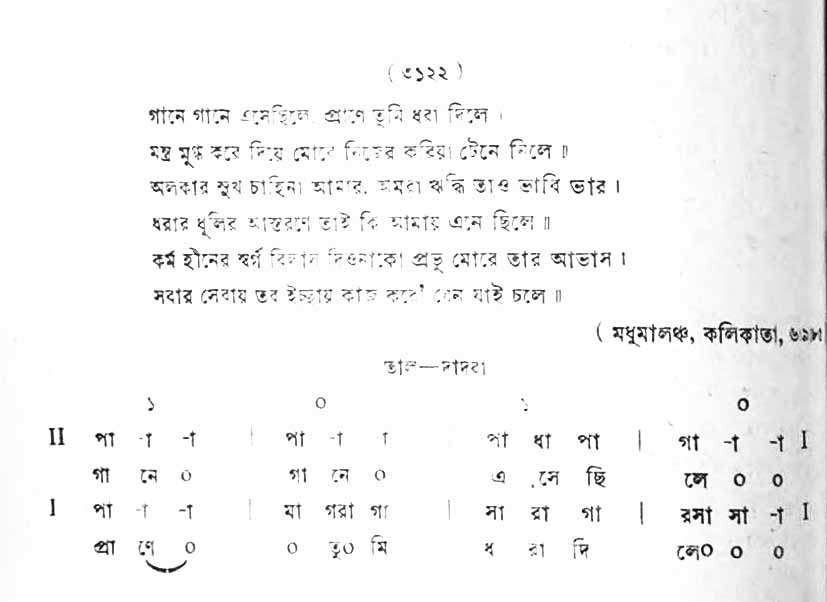 ( ৩১২২ )
গানে গানে এসেছিলে, প্রাণে তুমি ধরা দিলে ।
মন্ত্র মুগ্ধ করে দিয়ে মোরে নিজের করিয়া টেনে নিলে ॥
অলকার সুখ চাহিনা আমার, অমরা ঋদ্ধি তাও ভাবি ভার ।
ধরার ধূলির আস্তরণে তাই কি আমায় এনে ছিলে ॥
কর্ম হীনের স্বর্গ বিলাস দিওনাকো প্রভু মোরে তার আভাস ।
সবার সেবায় তব ইচ্ছায় কাজ করে' যেন যাই চলে ॥
( মধুমালঞ্চ, কলিকাতা,
তাল—দাদরা
১ ০ ১ ০
II পা -া -া | পা -া া পা ধা পা | গা -া -া I
গা নে ০ গা নে ০ এ সে ছি লে ০ ০
I পা -া -া | মা গরা গা | সা রা গা | রসা সা -া I
প্রা ণে ০ ০ তু০ মি ধ রা দি লে০ ০ ০